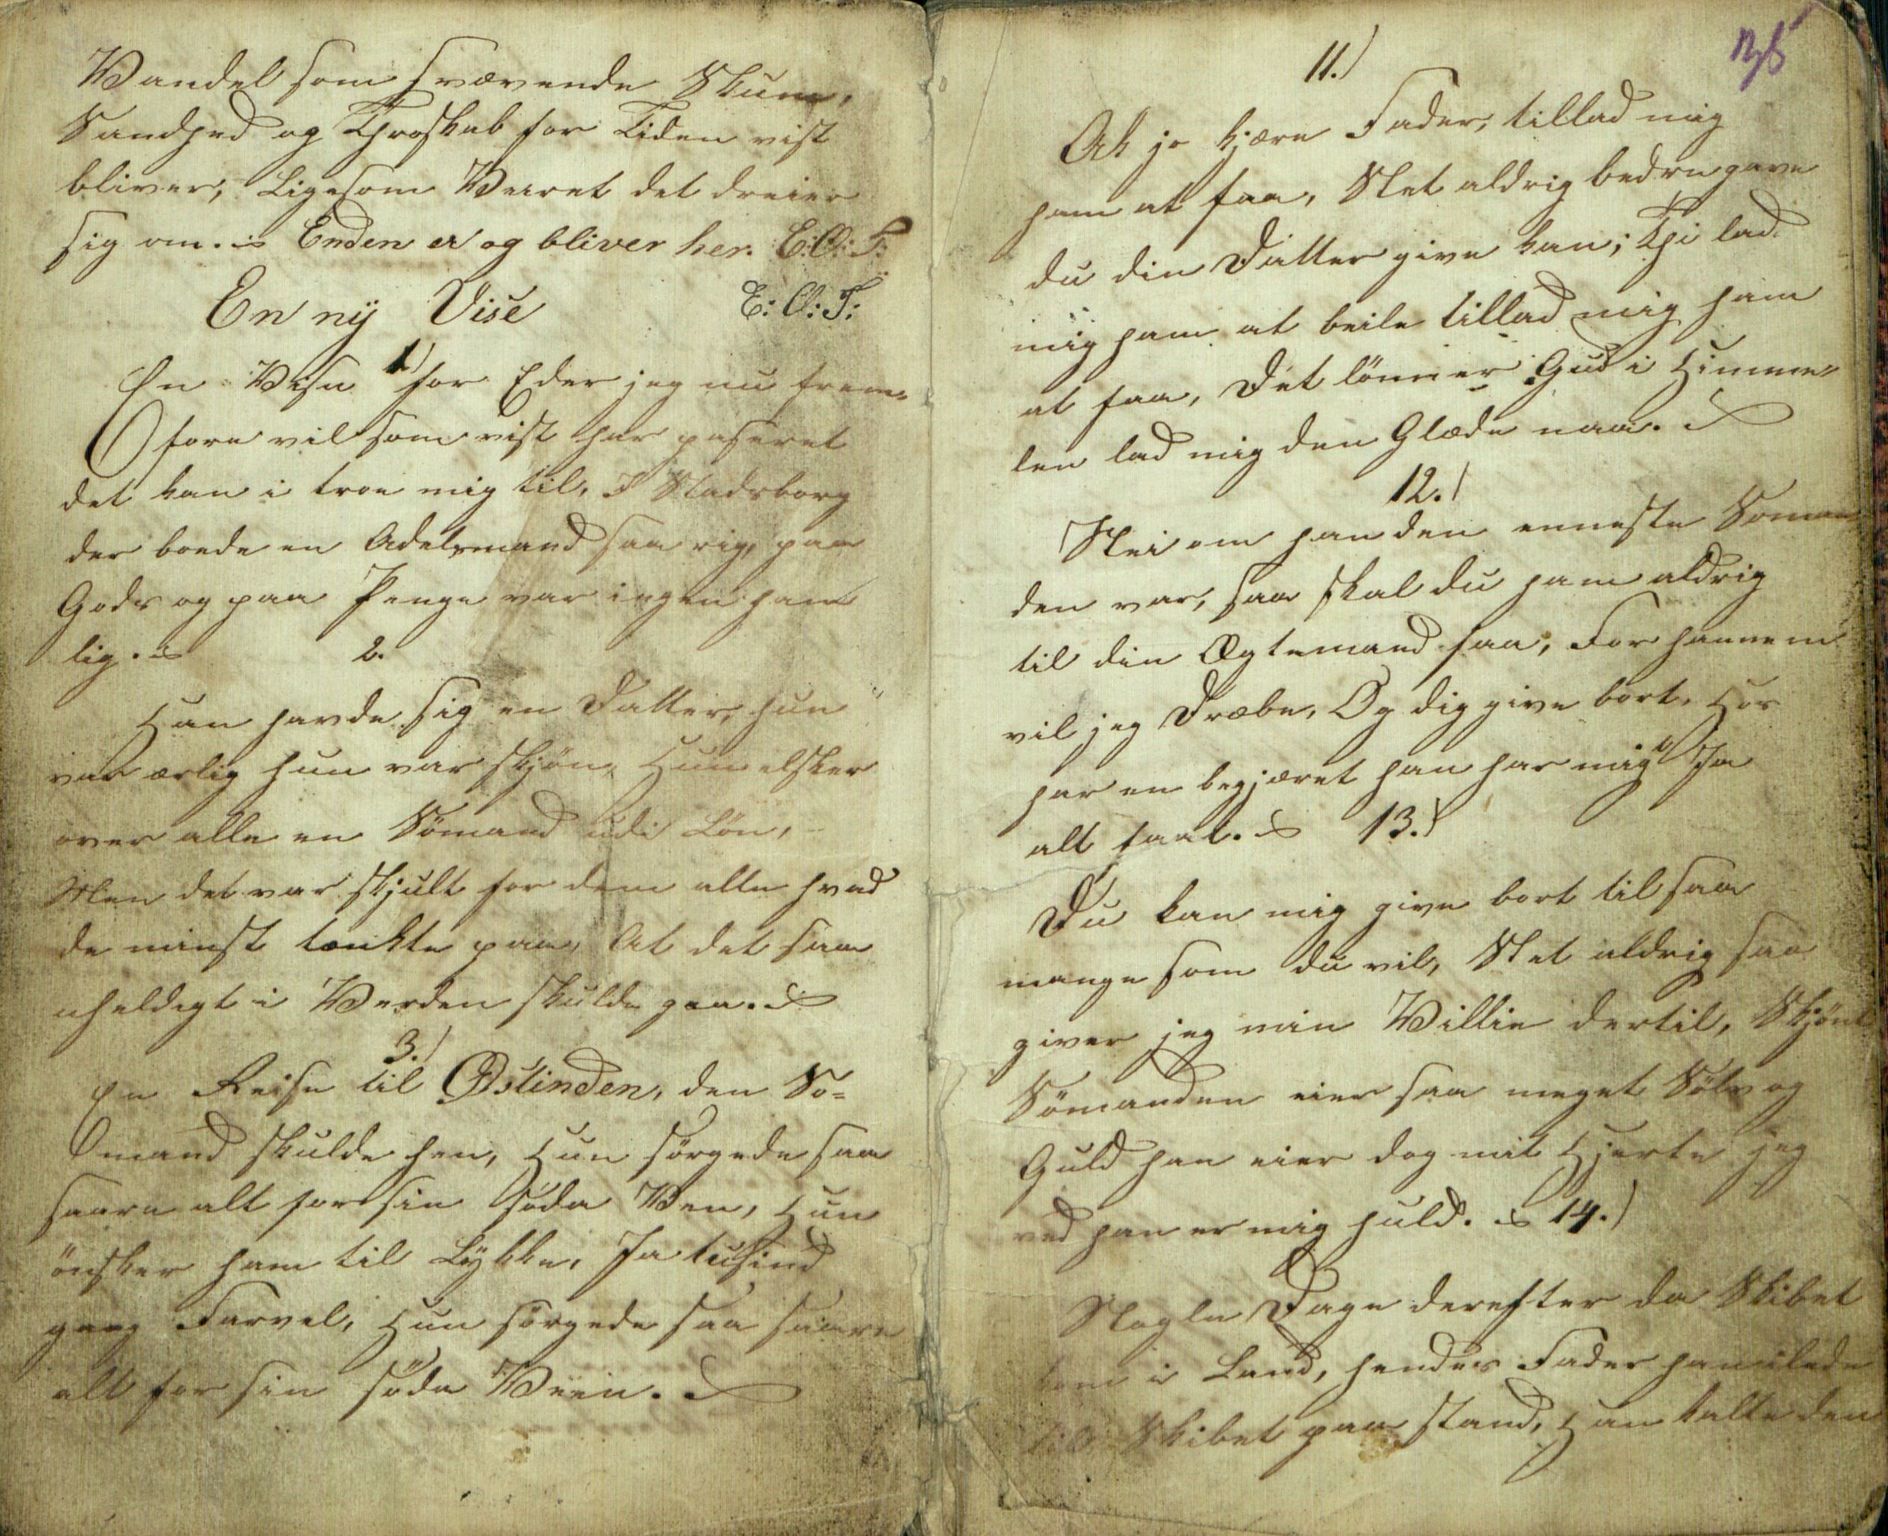 Wandel som svævende Skum,
Sandhed og Throskab for Tiden vist
bliver; Ligesom Veiret det dreier
sig om. Enden er og bliver her. E: O: T:
En nÿ Vise E: O: T:
1)
En Vise for Eder jeg nu frem=
fore vil som vist har paseret
det kan i troe mig til, I Stadsborg
der boede en Adelsmand saa rig, paa
Gods og paa Penge var ingen ham
lig. 2.
Han havde sig en Datter, hun
var ærlig hun var skjøn, Hun elsker
over alle en Sömand udi Lön,
Men det var skjult for dem alle hvad
de minst tænkte paa, At det saa
uheldigt i Verden skulde gaa.
3.)
En Reise til Östinden, den So=
mand skulde hen, Hun sörgede saa
saare alt for sin söde Ven, Hun
önsker ham til Lÿkke, Ja tusind
gang Farvel, Hun sörgede saa saare
alt for sin söde Veen.
11.)
Ak jo kjære Fader, tillad mig
ham at faa, Slet aldrig bedre gave
du din Datter give kan; Thi lad
mig ham at beile tillad mig ham
at faa, Det lönner Gud i Himme=
len lad mig den Glæde naa.
12.)
Nei om han den enneste Soman
den var, saa skal du ham aldrig
til din Ægtemand faa, For hannem
vil jeg Dræbe, Og dig give bort, Hos
har en begjæret han har mig Ja
alt faat. 13.)
Du kan mig give bort til saa
mange som du vil, Slet aldrig saa
giver jeg min Villie dertil, Skjönt
Sömanden eier saa meget Sölv og
Guld han eier dog mit Hjerte jeg
ved han er mig huld. 14.)
Nogle Dage derefter da Skibet
kom i Land, hendes Fader han ilede
til Skibet paa stand, Han kalte den